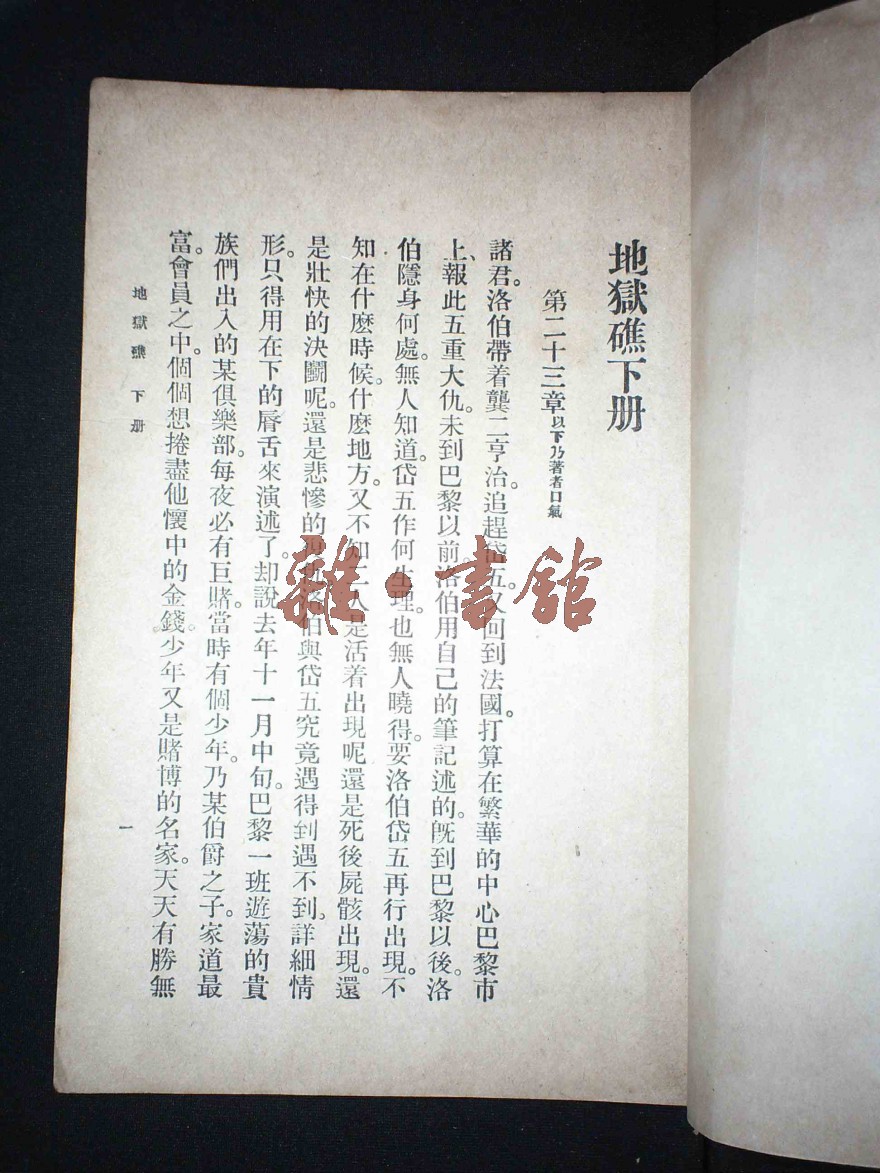 地獄礁下册
第二十三章以下乃著者口氣
諸君。洛伯帶着龔二亨治。追趕岱五。又回到法國。打算在繁華的中心巴黎市
上、報此五重大仇。未到巴黎以前。洛伯用自己的筆記述的。旣到巴黎以後。洛
伯隱身何處。無人知道。岱五作何生理。也無人曉得。要洛伯岱五再行出現。不
知在什麽時候。什麽地方。又不知二人是活着出現呢還是死後屍骸出現。還
是壯快的決鬭呢。還是悲慘的洛伯與岱五究竟遇得到遇不到。詳細情
形。只得用在下的脣舌來演述了。却說去年十一月中旬。巴黎一班遊蕩的貴
族們出入的某俱樂部。每夜必有巨賭。當時有個少年。乃某伯爵之子。家道最
富。會員之中。個個想捲盡他懷中的金錢。少年又是賭博的名家。天天有勝無
地獄礁 下册
一
雜·書館